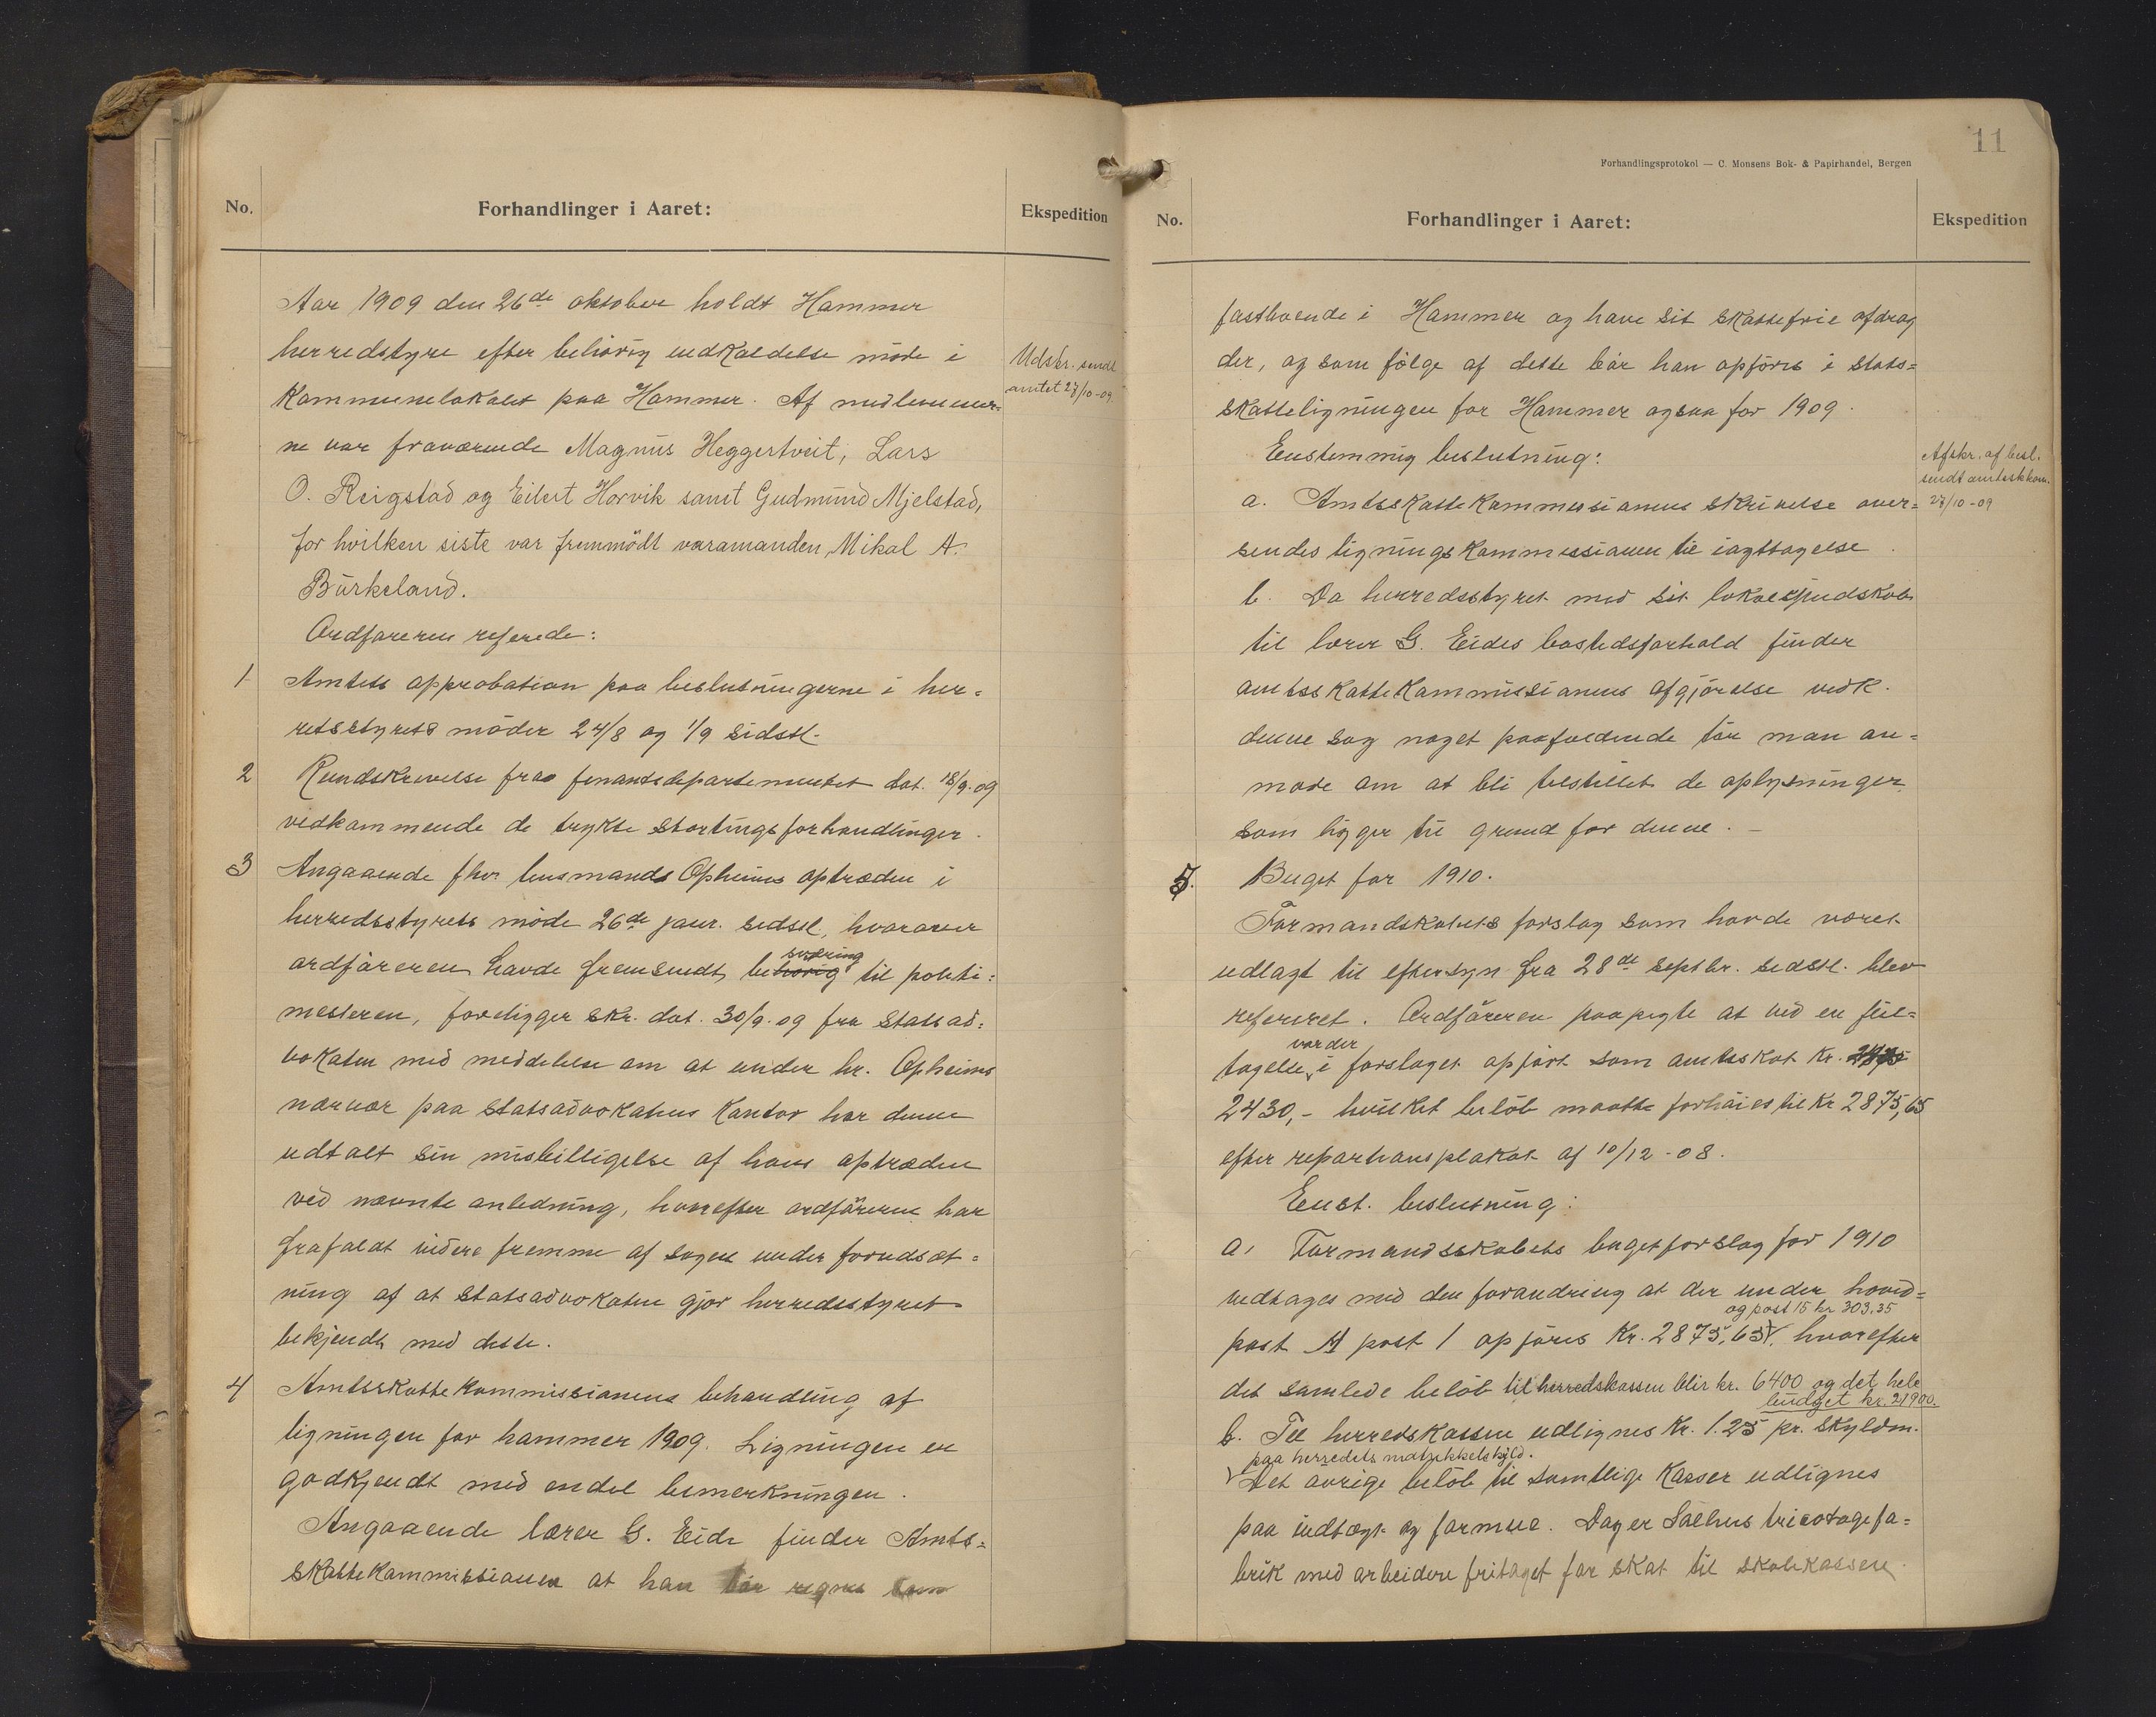 No.
Forhandlinger i Aaret:
Ekspedition
Aar 1909 den 26de oktober holdt Hammer
herredstyre efter behörig indkaldelse möde i
Kommunelokalet paa Hammer. Af medlemmer-
ne var fraværende Magnus Heggertveit, Lars
O. Reigstad og Eilert Horvik samt Gudmund Mjelstad,
for hvilken siste var fremmödt varamanden, Mikal A.
Burkeland.
Ordföreren referede:
Udskr. sendt
amtet 27/10-09.
1 Amtets approbation paa beslutningerne i her-
retsstyrets möder 24/8 og 1/9 sidstl.
2 Rundskrivelse fra finantsdepartementet dat. 18/9.09
vedkommende de trykte stortingsforhandlinger.
3 Angaaende fhv. lensmands Opheims optræden i
herredsstyrets möde 26de janr. sidstl, hvorover
sværing
ordföreren havde fremsendt behörig til politi-
mesteren, foreligger skr. dat. 30/9.09 fra statsad-
vokaten med meddelelse om at under hr. Opheims
nærvær paa statsadvokatens kontor har denne
udtalt sin misbilligelse af hans optræden
ved nævnte anledning, hvorefter ordföreren har
frafaldt videre fremme af sagen under forudsæt-
ning af at statsadvokaten gjör herredsstyret
bekjendt med dette.
4 Amtsskattekommissionens behandling af
ligningen for hammer 1909. Ligningen er
godkjendt med endel bemerkninger.
Angaaende lærer G. Eide finder Amts-
skattekommissionen at han bör regnes som
11
Forhandlingsprotokol — C. Monsens Bok- & Papirhandel, Bergen
No.
Forhandlinger i Aaret:
Ekspedition
fastboende i Hammer og have sit skattefrie afdrag
der, og som fölge af dette bör han opföres i stats-
skatteligningen for Hammer ogsaa for 1909.
Enstemmig beslutning:
a. Amtsskattekommissionens skrivelse over-
sendes ligningskommissionen til iagttagelse.
Afskr. af besl.
sendt amtsskkom.
27/10-09
b. Da herredsstyret med sit lokalkjendskab
til lærer G. Eides bostedsforhold finder
amtsskattekommissionens afgjörelse vedk.
denne sag noget paafaldende bör man an-
mode om at bli tilstillet de oplysninger
som ligger til grund for denne. -
5. Buget for 1910.
Formandskabets forslag som havde været
udlagt til eftersyn fra 28de septbr. sidstl. blev
refereret. Ordföreren paapegte at ved en feil-
var der
tagelse, i forslaget opfört som amtsskat kr.
2430,- hvilket belöb maatte forhöies til kr 2875,65
efter repartionsplakat af 10/12-08.
Enst. beslutning:
a. Formandsskabets bugetforslag for 1910
vedtages med den forandring at der under hoved-
og post 15 kr 303.35
post A post 1 opföres Kr. 2875,65, hvorefter
det samlede belöb til herredskassen blir kr. 6400 og det hele
budget kr. 21900.
b. Til herredskassen udlignes Kr. 1.25 pr. skyldm.
paa herredets matrikkelskyld.
Det övrige belöb til samtlige kasser udlignes
paa indtægt og formue. Dog er Salhus tricotagefa-
brik med arbeidere fritaget for skat til skolekassen